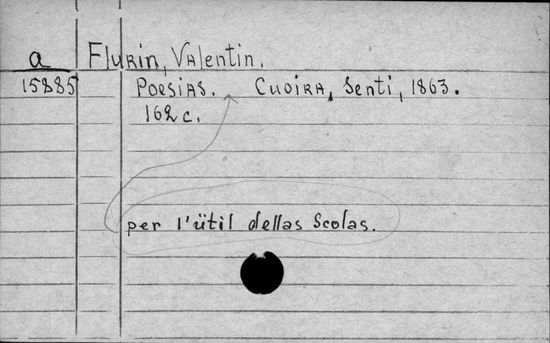 a Flurin, Valentin.
15885 Poesias. Cuoira, Senti, 1863.
162 c.
per l'ütil dellas Scolas.